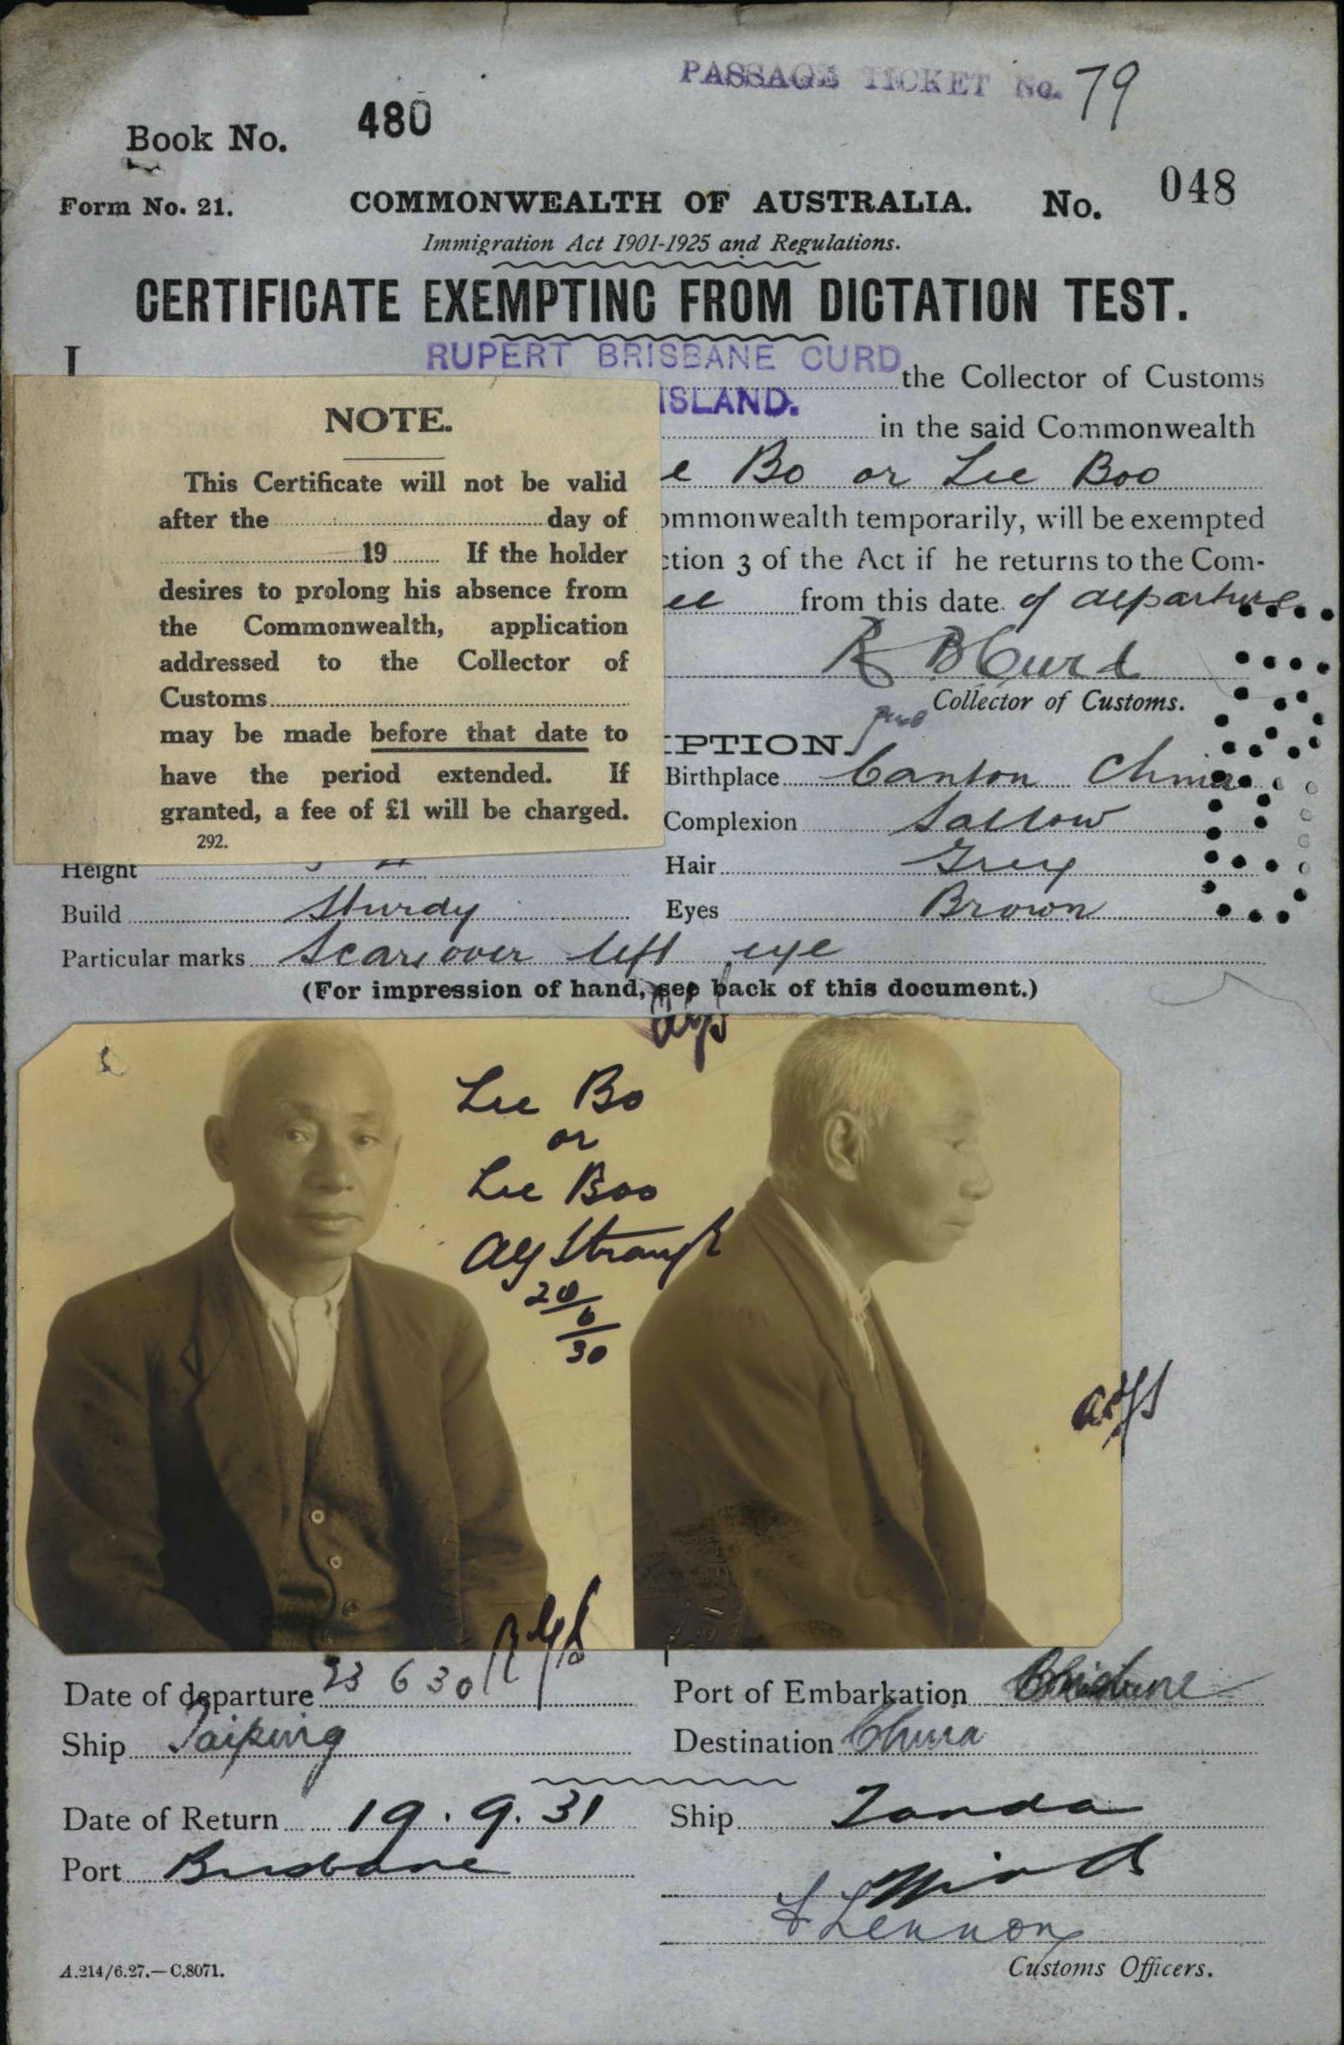 PASSAGE TICKET No. 79
Book No. 480
Form No. 21. COMMONWEALTH OF AUSTRALIA. No. 048
Immigration Act 1901-1925 and Regulations.
CERTIFICATE EXEMPTING FROM DICTATION TEST.
I RUPERT BRISBANE CURD the Collector of Customs
ISLAND.
in the said Commonwealth
e Bo or Lee Boo
ommonwealth temporarily, will be exempted
ction 3 of the Act if he returns to the Com-
ee from this date of departure
R B Curd
Collector of Customs.
NOTE.
This Certificate will not be valid
after the day of
19 If the holder
desires to prolong his absence from
the Commonwealth, application
addressed to the Collector of
Customs
may be made before that date to
have the period extended. If
granted, a fee of £1 will be charged.
292.
IPTION.
Birthplace Canton China
Complexion Sallow
Height Hair Grey
Build Sturdy Eyes Brown
Particular marks Scars over left eye
(For impression of hand, see back of this document.)
Lee Bo
or
Lee Boo
20
6
30
Date of departure 23 6 30 Port of Embarkation Brisbane
Ship Taiping Destination China
Date of Return 19.9.31 Ship Tanda
Port Brisbane
Lennon
Customs Officers.
A.214/6.27.—C.8071.